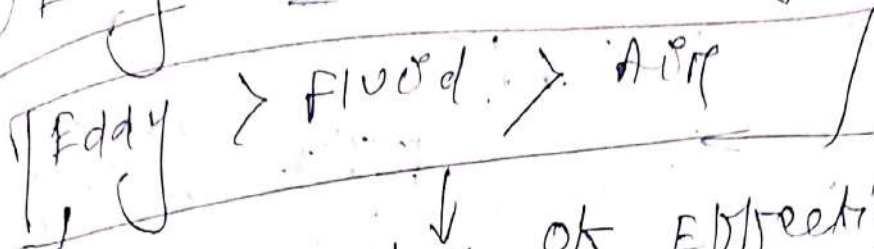 Eddy > Fluid > Air
↓
of Effecti